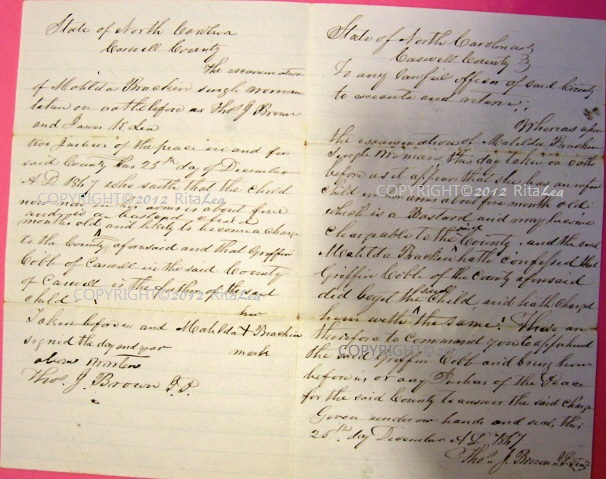 State of North Carolina
Caswell County
The examination
of Matilda Bracken single woman
taken on oath before us Thos J Brown
and James N Lea
two Justices of the peace in and for
said County this 25th day of December
A.D. 1867 who saith that the child
now in her arms is about five
months old and is a bastard child
and likely to become a charge
to the County aforesaid and that Griffin
Cobb of Caswell in the said County
of Caswell is the father of the said
child
Taken before us and Matilda her X mark Bracken
signed the day and year
above written
Thos. J. Brown J.P.
State of North Carolina
Caswell County
To any Lawful officer of said County
to execute and return;
Whereas upon
the examination of Matilda Bracken
Single Woman this day taken on oath
before us it appears that she has an infant
child in her arms about five months old
which is a Bastard and may become
chargeable to the said County, and the said
Matilda Bracken hath confessed that
Griffin Cobb of the County aforesaid
did beget the said Child, and hath charged
him with the same. These are
therefore to Command you to apprehend
the said Griffin Cobb and bring him
before us or any Justices of the Peace
for the said County to answer the said charge
Given under our hands and seal, this
25th day December A.D. 1867
Thos. J. Brown J.P. Seal
COPYRIGHT©2012 RitaLea
COPYRIGHT©2012 RitaLea
COPYRIGHT©2012 RitaLea
COPYRIGHT©2012 RitaLea